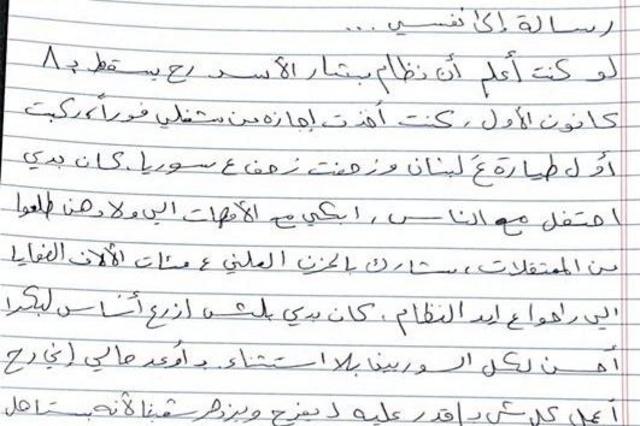 رسالة إلى نفسي ...
لو كنت أعلم أن نظام بشار الأسد رح يسقط بـ ٨
كانون الأول، كنت أخذت إجازة من شغلي فوراً، ركبت
أول طيارة عَ لبنان وزحفت زحف ع سوريا. كان بدي
احتفل مع الناس، ابكي مع الأمهات الي ولادهن طلعوا
من المعتقلات، شارك بالحزن العلني ع مئات الآلاف الضحايا
الي راحوا ع ايد النظام. كان بدي بلش ازرع أساس لبكرا
أحسن لكل السوريين بلا استثناء. و أوعد حالي إني رح
أعمل كل شي بقدر عليه ليفرح ويزدهر شعبنا لأنه بستاهل